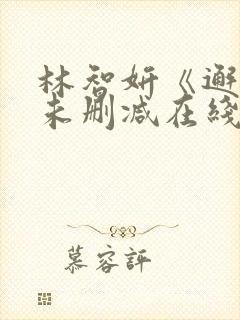 林智妍《邂
未删减在线
慕容評